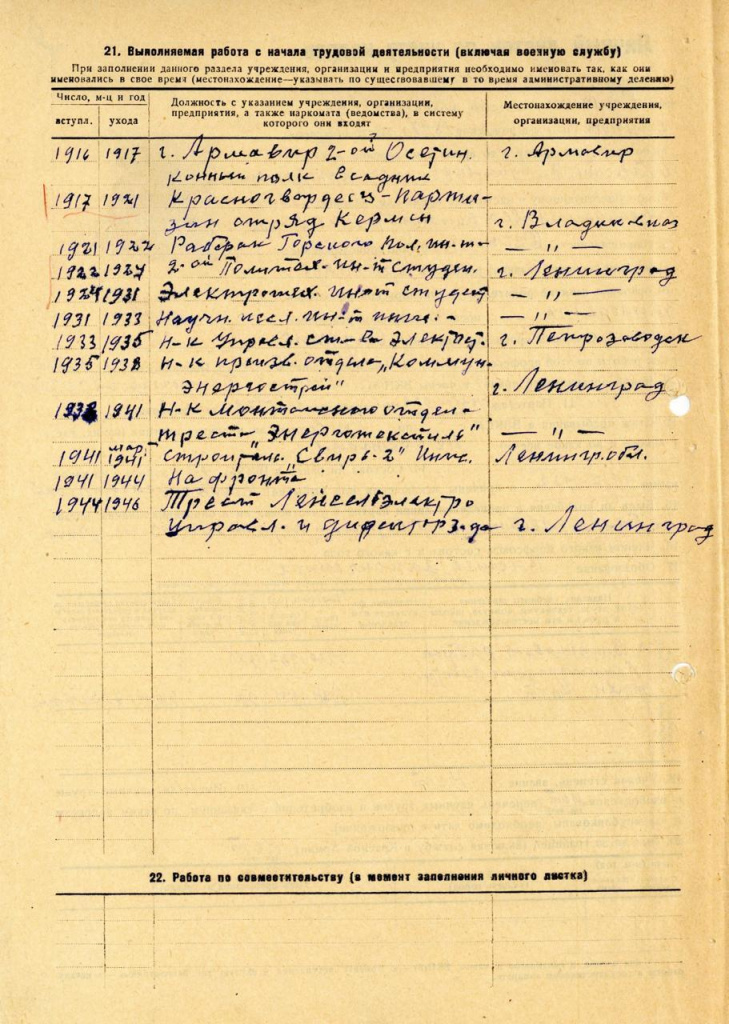 21. Выполняемая работа с начала трудовой деятельности (включая военную службу)
При заполнении данного раздела учреждения, организации и предприятия необходимо именовать так, как они
именовались в свое время (местонахождение—указывать по существовавшему в то время административному делению)
Число, м-ц и год
вступл. ухода
Должность с указанием учреждения, организации,
предприятия, а также наркомата (ведомства), в систему
которого они входят
Местонахождение учреждения,
организации, предприятия
1916 1917 г. Армавир 2-ой Осетин. г. Армавир
конный полк всадник
1917 1921 Красногвардеец-парти-
зан отряд Кермен г. Владикавказ
1921 1922 Рабфак Горского пол. ин-та — " —
1922 1924 2-ой Политех. ин-т студен. г. Ленинград
1924 1931 Электротех. инст студент — " —
1931 1933 Научн. иссл. ин-т инж. — " —
1933 1935 Н-к Управл. г. Петрозаводск
1935 1938 Н-к произв. отдела „Коммун-
энергострой" г. Ленинград
1938 1941 Н-к монтажного отдела
треста „Энерготекстиль" — " —
1941 мар. 1941 „Свирь-2" Инж. Ленингр. обл.
1941 1944 На фронте
1944 1946 Трест Ленсельэлектро
Управл. и г. Ленинград
22. Работа по совместительству (в момент заполнения личного листка)